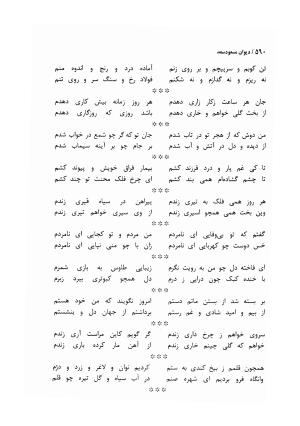 ۵۹۰ / دیوان مسعودسعد
تن گویم و سرپیچم و بر روی زنم آماده درد و رنج و اندوه منم
نه ریزم و نه گدازم و نه شکنم فولاد رخ و سنگ سر و روی تنم
***
جان هر ساعت زکار زاری دهدم هر روز زمانه بیش کاری دهدم
از بخت گلی خواهم و خاری دهدم باشد روزی که روزگاری دهدم
***
من دوش که از هجر تو در تاب شدم جان تو که گر چو شمع در خواب شدم
از دیده و دل در آتش و آب شدم بر جام چو بر آینه سیماب شدم
***
تا کی غم یار و درد فرزند کشم بیمار فراق خویش و پیوند کشم
تا چشم گشاده‌ام همی بند کشم ای چرخ فلک محنت تو چند کشم
***
هر روز همی فلک به تیری زندم پیراهن در سیاه قیری زندم
وین بخت همی همچو اسیری زندم از وی سیری خواهم تیری زندم
***
گفتم که تو بی‌وفایی ای نامردم من مردم و تو کجایی ای نامردم
خس دوست چو کهربایی ای نامردم زان با چو منی نپایی ای نامردم
***
ای فاخته دل چو من به رویت نگرم زیبایی طاوس به بازی شمرم
با خنده کبک چون درایی ز درم دل همچو کبوتری بپرد زبرم
***
بر بسته شد از بستن ماتم دستم امروز نگویند که من خود هستم
از بیم و امید شادی و غم رستم برداشتم از جهان دل و بنشستم
***
سروی خواهم ز چرخ داری زندم گر گویم کاین مراست آری زندم
خواهم که گلی چینم خاری زندم از آهن مار کرده باری زندم
***
همچون قلمم ز بیخ کندی به ستم کردیم نوان و لاغر و زرد و دژم
وانگاه فرو بردیم ای شهره صنم در آب سیاه و گل تیره چو قلم
***